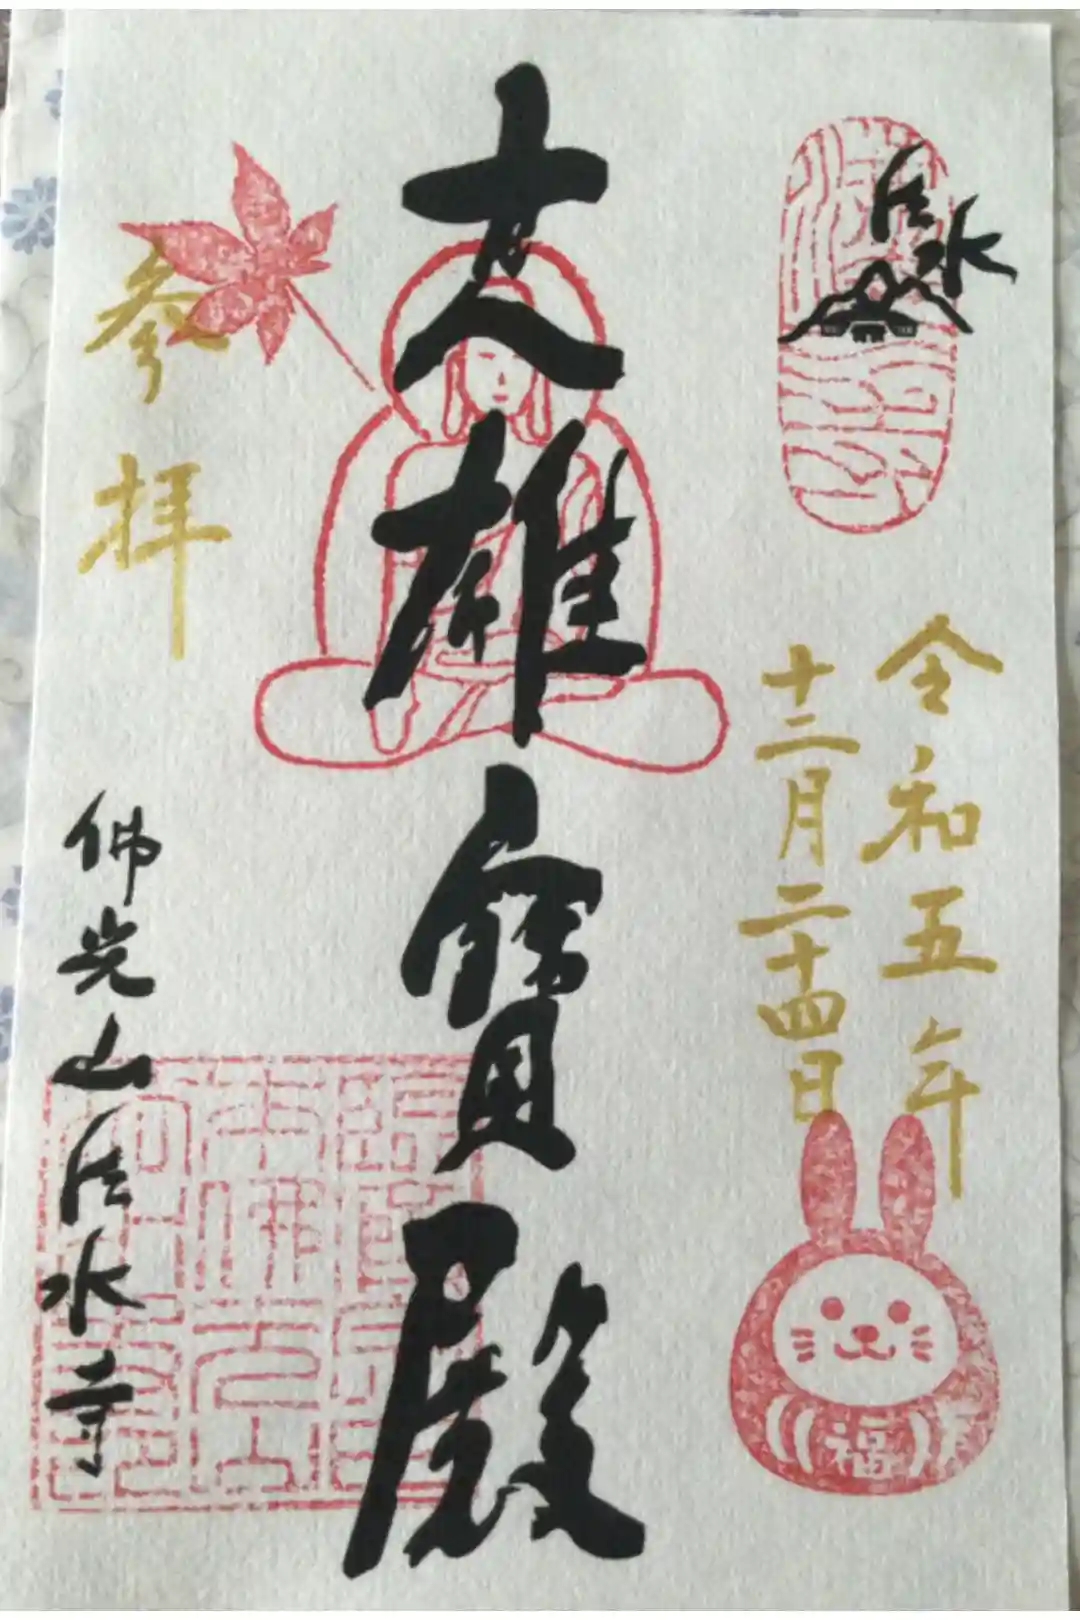 法水
令和五年
十二月二十四日
福
大雄寶殿
参拝
佛光山法水寺